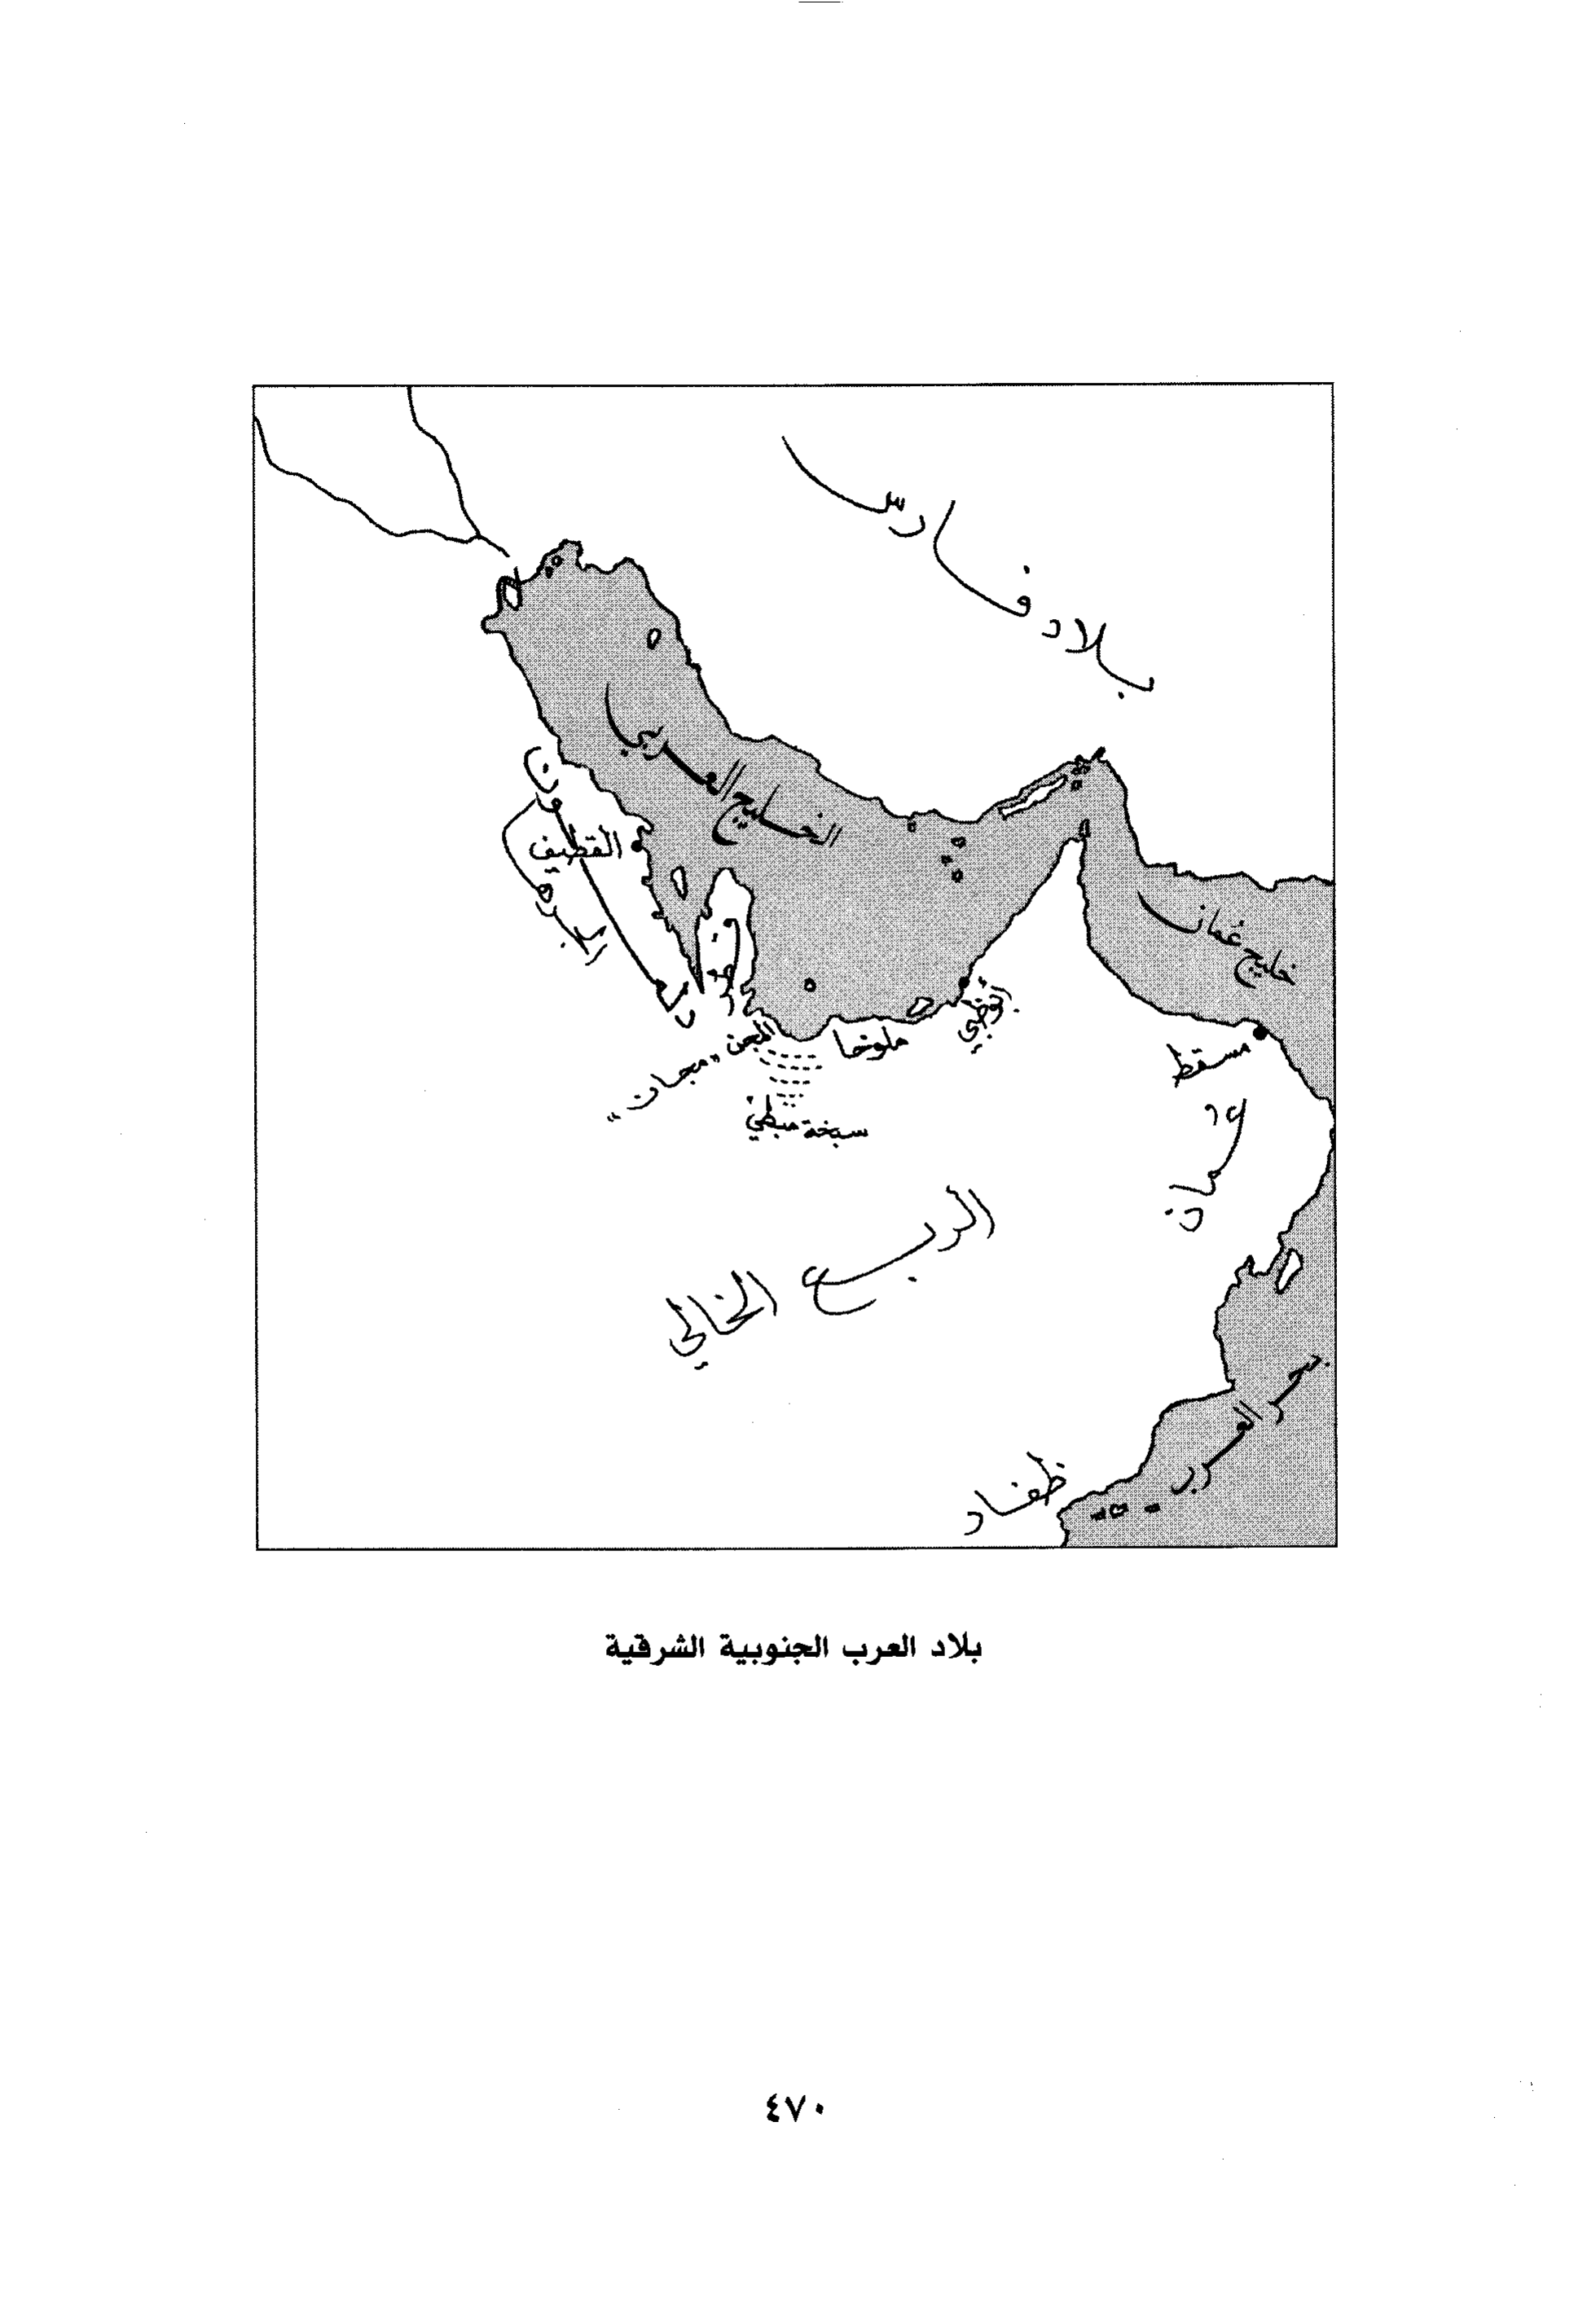 بلاد فارس
الخليج العربي
القطيف
خليج عُمان
أبوظبي
مسقط
المجن "مجان"
ملوخا
سبخة مطي
عُمان
الربع الخالي
بحر العرب
ظفار
بلاد العرب الجنوبية الشرقية
٤٧٠